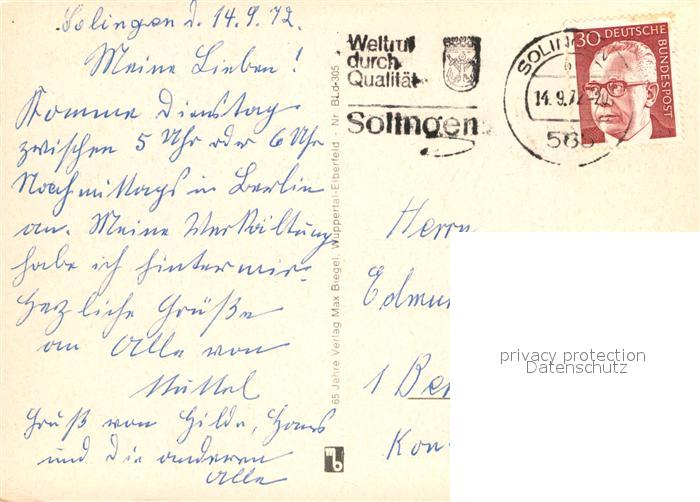 Solingen d. 14.9.72.
Meine Lieben!
Komme Dienstag
zwischen 5 Uhr oder 6 Uhr
Nachmittags in Berlin
an. Meine Verkältung
habe ich hinter mir.
Herzliche Grüße
an Alle von
Muttel
Gruß von Hilde, Hans
und die anderen
Alle
65 Jahre Verlag Max Biegel, Wuppertal-Elberfeld Nr. BLd-305
mb
Weltruf
durch
Qualität
Solingen
SOLING
14.9.72
565
30 DEUTSCHE
BUNDESPOST
Herrn
Edmu
1 Be
Kon
privacy protection
Datenschutz